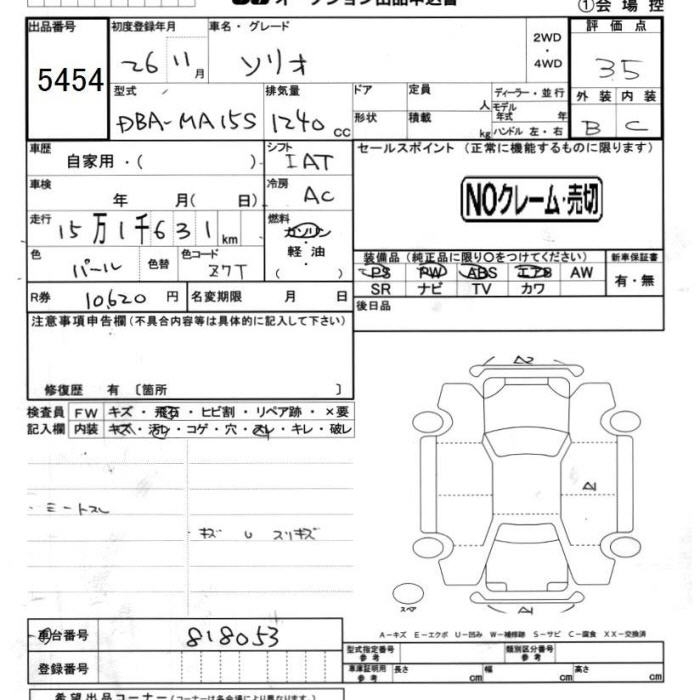 オークション出品申込書
①会場控
出品番号 初度登録年月 車名・グレード 2WD・4WD 評価点
5454 26 11月 ソリオ 35
型式 排気量 ドア 定員 人 ディーラー・並行 外装 内装
DBA-MA15S 1240 cc 形状 積載 kg モデル年式 年 ハンドル 左・右 B C
車歴 自家用・( ) シフト IAT セールスポイント(正常に機能するものに限ります)
車検 年 月(日) 冷房 AC NOクレーム・売切
走行 15万1千631km 燃料 ガソリン・軽油 ( )
色 パール 色替 色コード Z7T 装備品(純正品に限り○をつけてください) 新車保証書
PS PW ABS エアB AW 有・無
SR ナビ TV カワ
R券 10,620円 名変期限 月 日 後日品
注意事項申告欄(不具合内容等は具体的に記入して下さい)
修復歴 有 〔箇所 〕
検査員 FW キズ・飛石・ヒビ割・リペア跡・×要
記入欄 内装 キズ・汚レ・コゲ・穴・スレ・キレ・破レ
A2
A2
・シートスレ
・キズ U スリキズ
スペア
車台番号 818053
A-キズ E-エクボ U-凹み W-補修跡 S-サビ C-腐食 XX-交換済
登録番号 型式指定番号 参考 類別区分番号 参考
車庫証明用 参考 長さ cm 幅 cm 高さ cm
希望出品コーナー(コーナーは各会場により異なります)